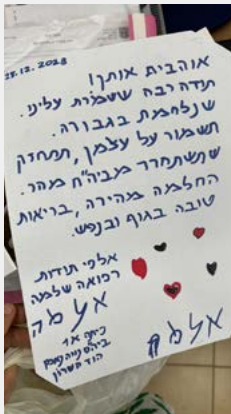 28.12.2023
אוהבית אותך!
תודה רבה ששמרת עלינו.
שנלחמת בגבורה.
תשמור על עצמך, תתחזק
שתשתחרר מביה"ח מהר.
החלמה מהירה, בריאות
טובה בגוף ובנפש.
אלפי תודות
רפואה שלמה
כיתה א1
הוד השרון